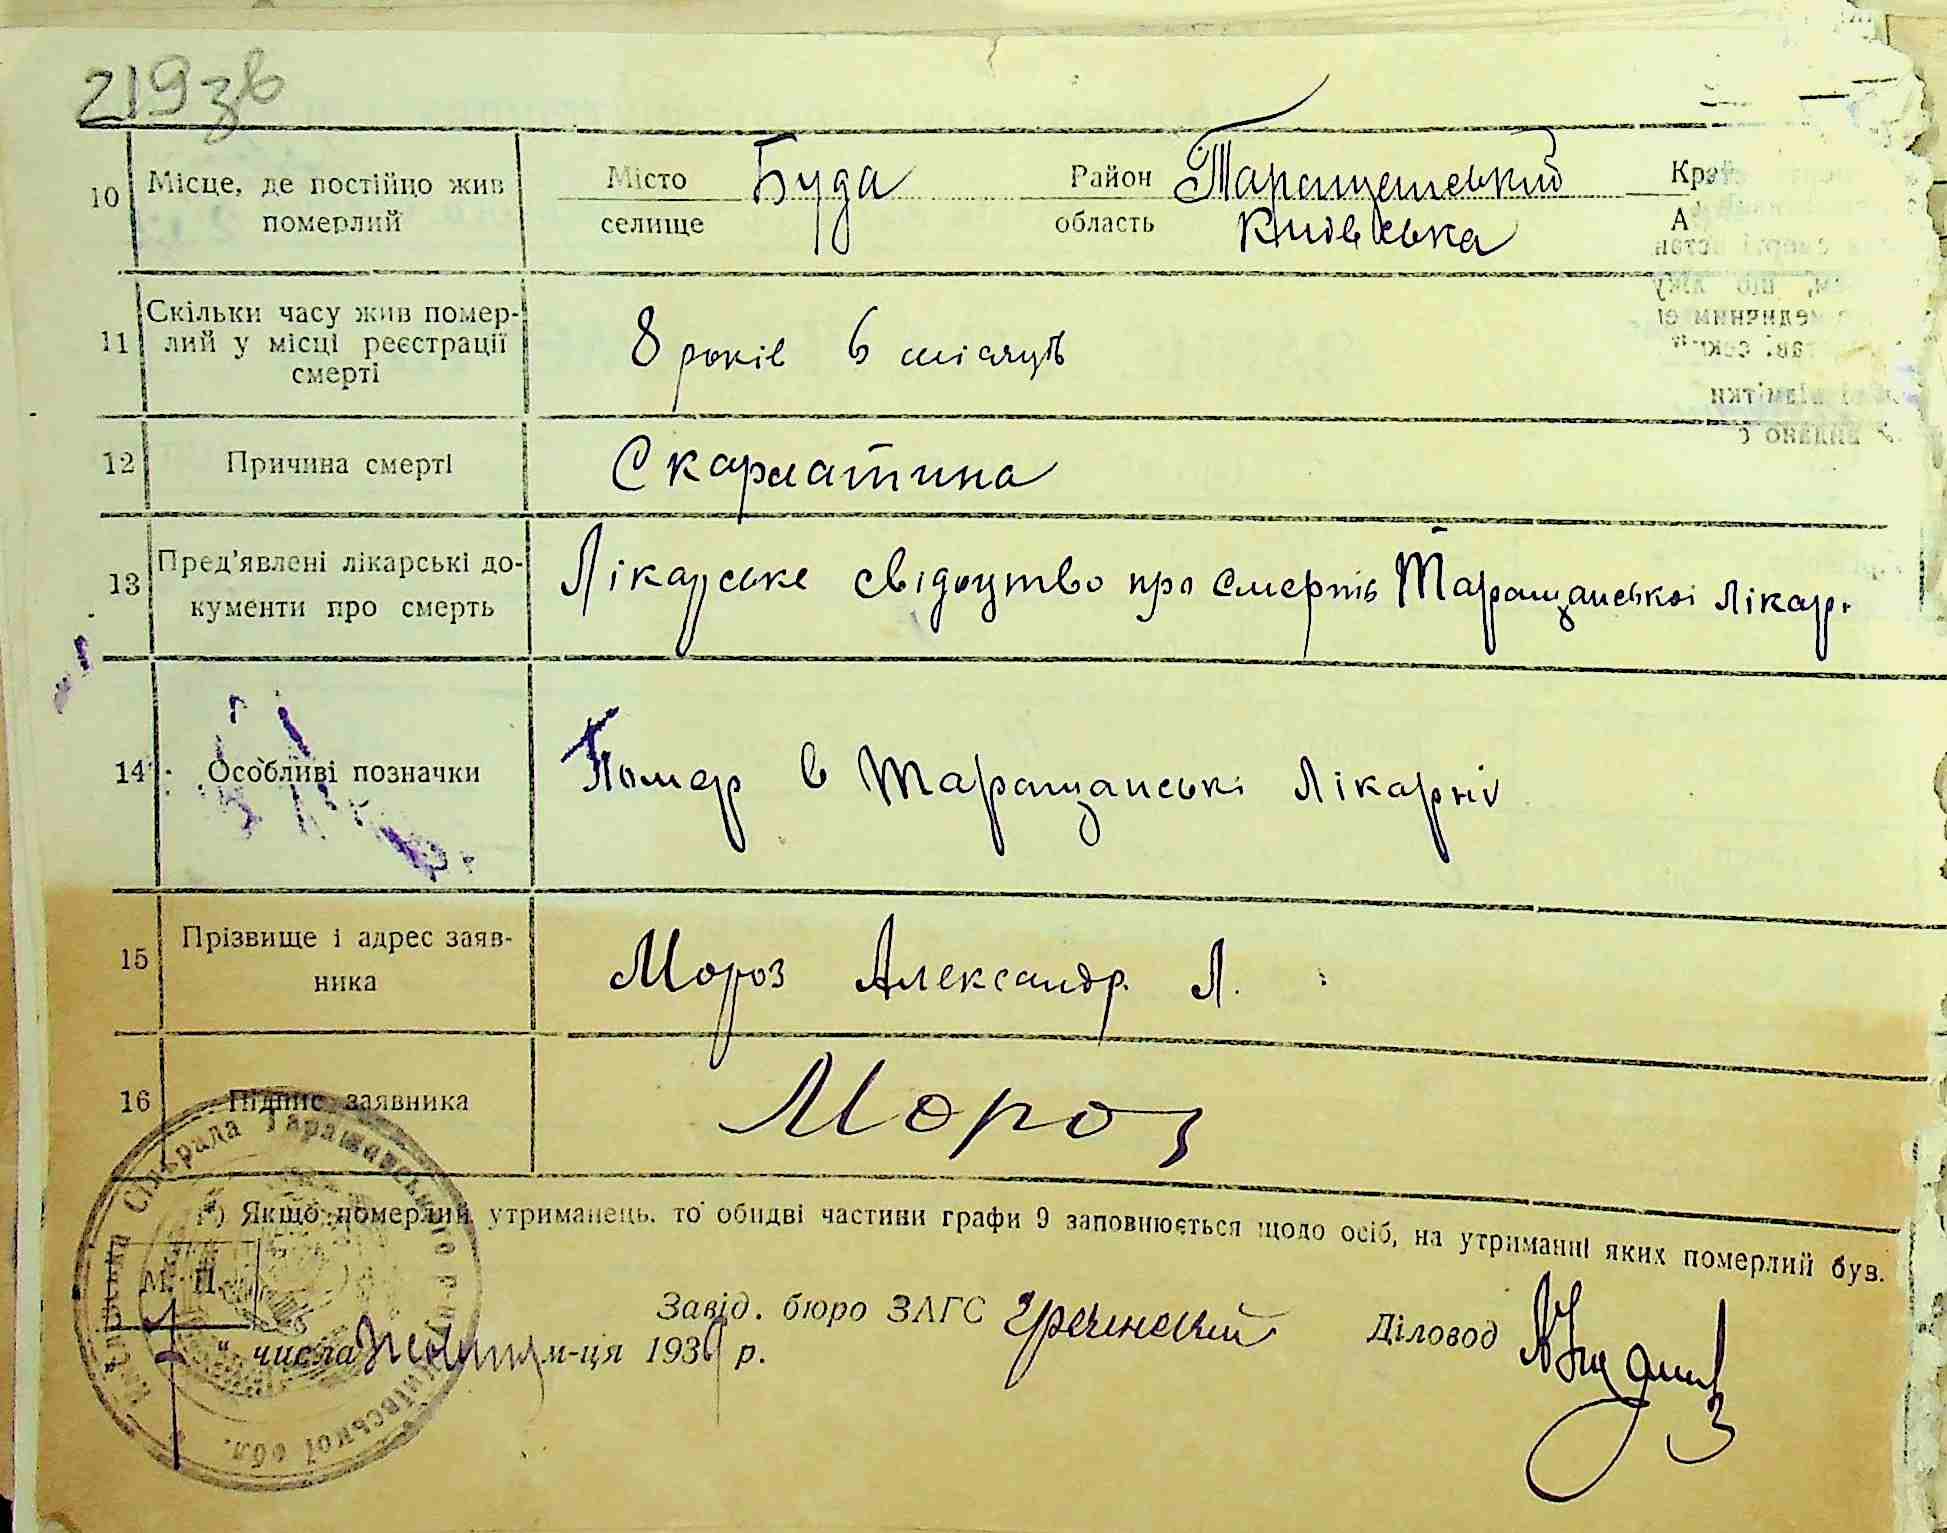 219 зв
10 Місце, де постійно жив померлий Місто селище Буда Район область Таращанський Київська Край А
11 Скільки часу жив померлий у місці реєстрації смерті 8 років 6 місяців
12 Причина смерті Скарлатина
13 Пред'явлені лікарські документи про смерть Лікарське свідоцтво про смерть Таращанської Лікар.
14 Особливі позначки Помер в Таращанські Лікарні
15 Прізвище і адрес заявника Мороз Александр. Л.
16 Підпис заявника Мороз
*) Якщо померлий утриманець, то обидві частини графи 9 заповнюється щодо осіб, на утриманні яких померлий був.
М. П.
Завід. бюро ЗАГС Гречинский Діловод
1 " числа м-ця 193 р.
Сільрада Таращанського р-ну Київської обл.